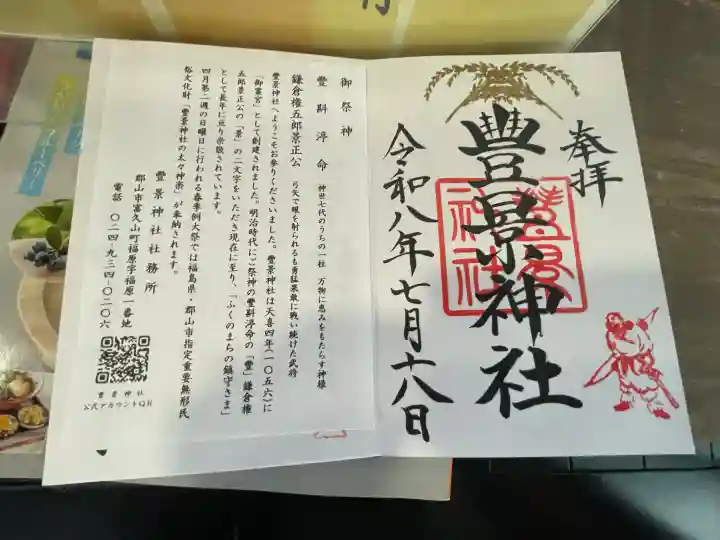 奉拝
豊景神社
豊景
神社
令和八年七月十八日
御祭神
豐斟渟命 神世七代のうちの一社 万物に恵みをもたらす神様
鎌倉権五郎景正公 弓矢で眼を射られるも勇猛果敢に戦い続けた武将
豊景神社へようこそお参りくださいました。豊景神社は天喜四年(一〇五六)に
「御霊宮」として創建されました。明治時代にご祭神の豐斟渟命の「豊」鎌倉権
五郎景正公の「景」の二文字をいただき現在に至り、「ふくのまちの鎮守さま」
として長年に亘り崇敬されています。
四月第二週の日曜日に行われる春季例大祭では福島県・郡山市指定重要無形民
俗文化財「豊景神社の太々神楽」が奉納されます。
豊景神社社務所
郡山市富久山町福原字福原一番地
電話 〇二四-九三四-〇二〇六
豊景神社
公式アカウントQR
ブルーベリー